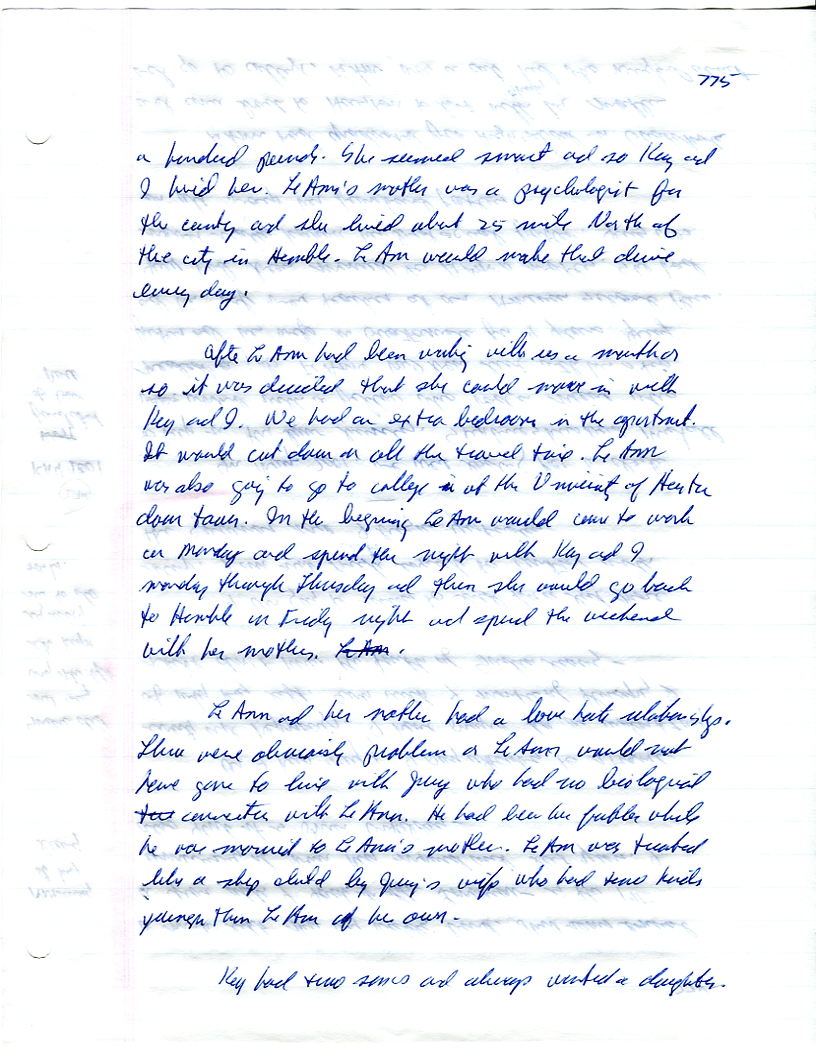 775
a hundred pounds. She seemed smart ad so Kay ad
I hired her. LeAnn's mother was a psychologist for
the county ad she lived about 25 mile North of
the city in Humble. LeAnn would make that drive
every day.
After LeAnn had been working with us a month or
so it was decided that she could move in with
Kay ad I. We had an extra bedroom in the apartment.
It would cut down on all the travel time. LeAnn
was also going to go to college at the University of Houston
down town. In the begining LeAnn would come to work
on Monday and spend the night with Kay ad I
monday through Thursday ad then she would go back
to Humble on Friday night ad spend the weekend
with her mother. LeAnn.
LeAnn ad her mother had a love hate relationship.
There were obviously problem or LeAnn would not
have gone to live with who had no biological
connection with LeAnn. He had been her father while
he was married to LeAnn's mother. LeAnn was treated
like a step child by wife who had two kids
younger than LeAnn of her own.
Kay had two sons ad always wanted a daughter.